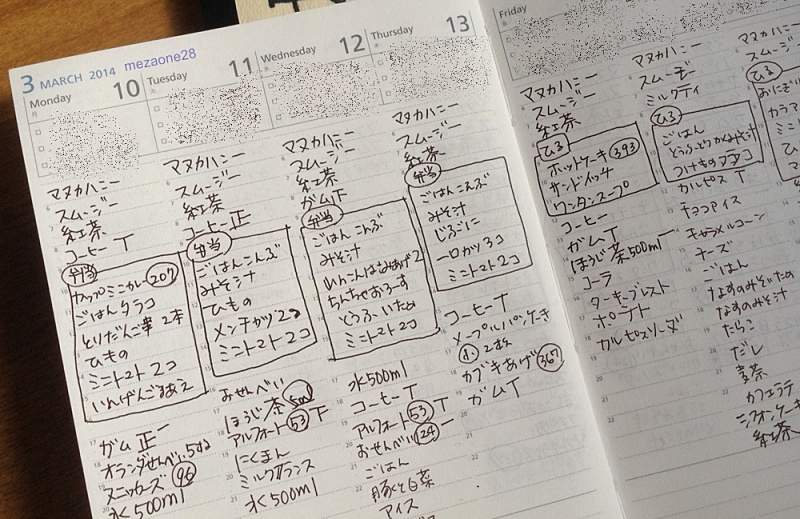 3 MARCH 2014 mezaone28
Monday 10
マヌカハニー
スムージー
紅茶
コーヒー T
弁当
カップミニカレー 207
ごはんタラコ
とりだんご串 2本
ひもの
ミニトマト2コ
いんげんごまあ2
ガム 正一
オランダせんべい
スニッカーズ 96
水500ml
Tuesday 11
マヌカハニー
スムージー
紅茶
コーヒー 正
弁当
ごはんこんぶ
みそ汁
ひもの
メンチカツ2コ
ミニトマト2コ
おせんべい
ほうじ茶
アルフォート 53 T
にくまん
ミルクフランス
水500ml
Wednesday 12
マヌカハニー
スムージー
紅茶
ガム正
弁当
ごはん こんぶ
みそ汁
とうふいため
ミニトマト2コ
水500ml
コーヒー T
アルフォート 53 T
おせんべい 124 一
ごはん
豚くと白菜
アイス
Thursday 13
マヌカハニー
スムージー
紅茶
弁当
ごはんこんぶ
みそ汁
一口カツ3コ
ミニトマト2コ
コーヒー T
メープルパンケーキ
小 2まい
カブキあげ 367
ガム T
Friday
マヌカハニー
スムージー
紅茶
ひる
ホットケーキ 393
サンドイッチ
ワンタンスープ
コーヒー
ガム T
ほうじ茶500ml
コーラ
ターキーブレスト
ポテイト
カルピスソーダ
マヌカハニー
スムージー
ミルクティ
ひる
ごはん
つけもの
カルピス T
チョコアイス
キャラメルコーン
チーズ
ごはん
なすのみそいため
なすのみそ汁
たらこ
だし
麦茶
カフェラテ
シフォンケーキ
紅茶
マヌカハニー
スムージー
ひる